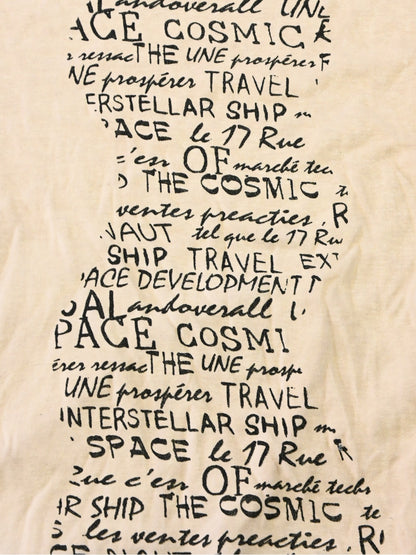 andoverall UNE
ACE COSMIC
ressac THE UNE prospérer
NE prospérer TRAVEL
ERSTELLAR SHIP
PACE le 17 Rue
c'en OF marché tech
THE COSMIC
ventes preacties, R
NAUT tel que le 17 Ru
SHIP TRAVEL EXT
PACE DEVELOPMENT
AL andoverall
PACE COSMI
érer ressac THE UNE prosp
UNE prospérer TRAVEL
INTERSTELLAR SHIP
SPACE le 17 Rue
Rue c'en OF marché techs
R SHIP THE COSMIC te
s les ventes preacties, R